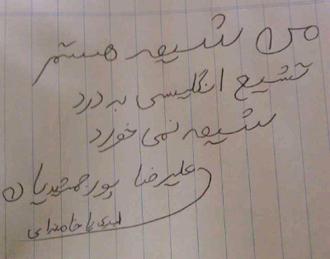 من شیعه هستم
تشیع انگلیسی به درد
شیعه نمی خورد
علیرضا پورجمشیدیان